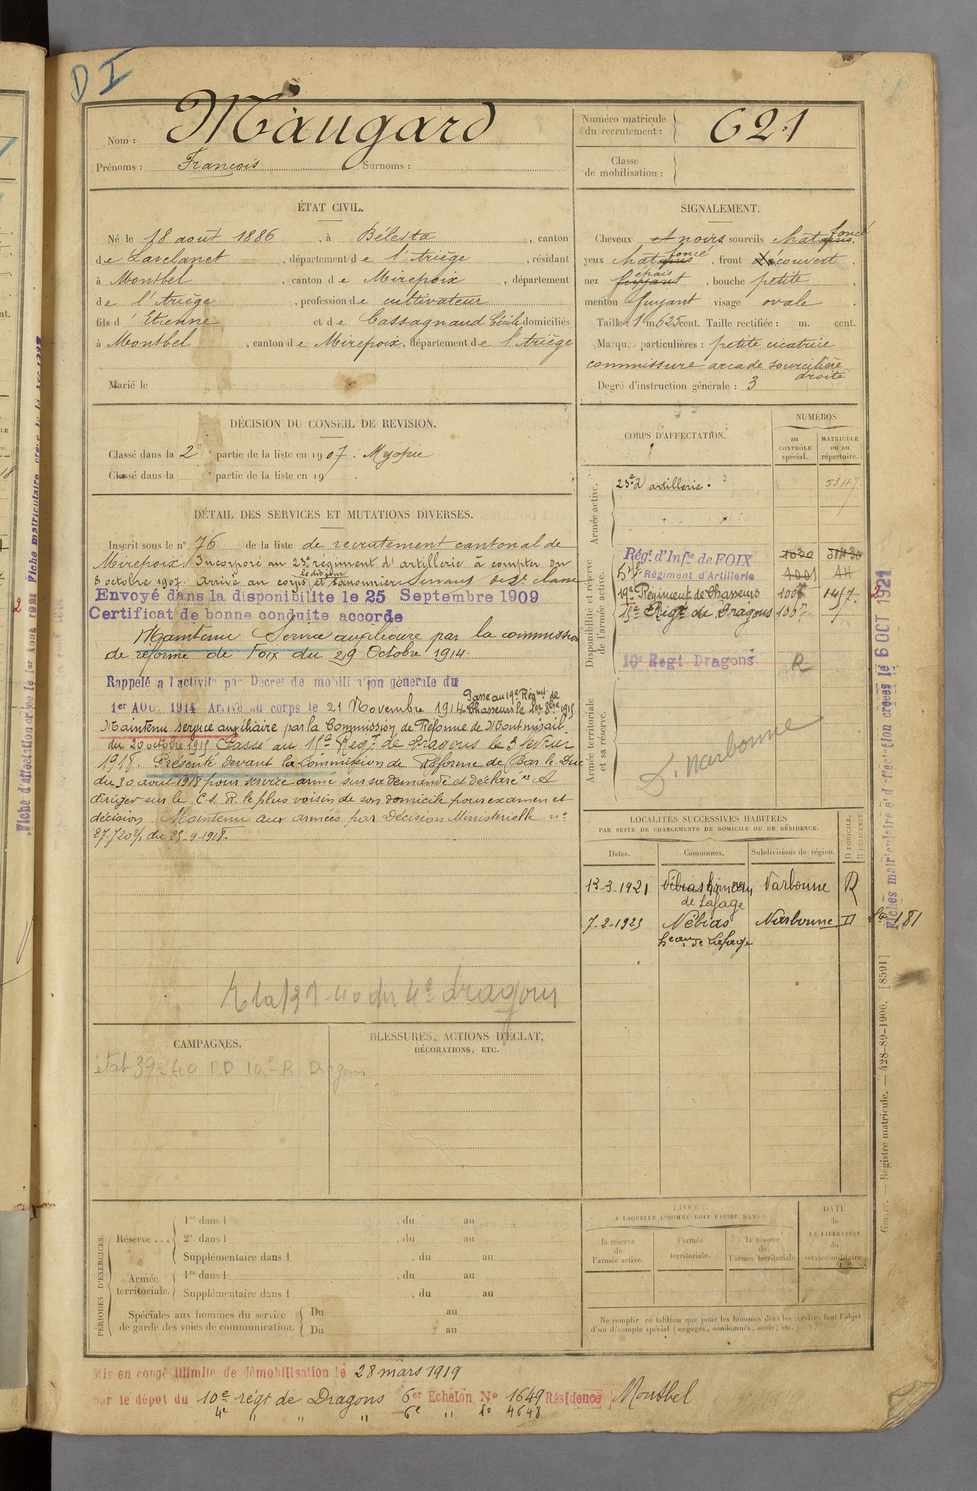 D I
Nom : Maugard
Prénoms : François Surnoms :
Numéro matricule du recrutement : 621
Classe de mobilisation :
ÉTAT CIVIL.
Né le 18 août 1886, à Bélesta, canton
de Lavelanet, département de l'Ariège, résidant
à Montbel, canton de Mirepoix, département
de l'Ariège, profession de cultivateur
fils d'Etienne et de Cassagnaud Cécile domiciliés
à Montbel, canton de Mirepoix, département de l'Ariège
Marié le
SIGNALEMENT.
Cheveux et noirs sourcils chatains foncé
yeux chatains foncé, front découvert,
nez fuyant épais, bouche petite,
menton fuyant visage ovale
Taille : 1 m 625 cent. Taille rectifiée : m. cent.
Marques particulières : petite cicatrice
commissure arcade sourcilière
droite
Degré d'instruction générale : 3
DÉCISION DU CONSEIL DE REVISION.
Classé dans la 2 partie de la liste en 1907. Myopie
Classé dans la partie de la liste en 19 .
DÉTAIL DES SERVICES ET MUTATIONS DIVERSES.
Inscrit sous le n° 76 de la liste de recrutement cantonal de
Mirepoix. Incorporé au 23e régiment d'artillerie à compter du
8 octobre 1907. Arrivé au corps et canonnier servant de 2e classe
le dit jour
Envoyé dans la disponibilité le 25 Septembre 1909
Certificat de bonne conduite accordé
Maintenu Service auxiliaire par la commission
de réforme de Foix du 29 Octobre 1914.
Rappelé à l'activité par Décret de mobilisation générale du
1er AOU. 1914 Arrivé au corps le 21 Novembre 1914. Passé au 19e Régt de
Chasseurs le 1915
Maintenu service auxiliaire par la Commission de Réforme de
du 20 octobre 1915 Passé au 15e Régt de Dragons le 3 février
1918. Présenté devant la Commission de Réforme de Bar le Duc
du 30 avril 1918 pour service armé sur sa demande et déclaré "A
diriger sur le C.S.R. le plus voisin de son domicile pour examen et
décision. Maintenu aux armées par décision Ministerielle n°
du 25-9-1918.
CORPS D'AFFECTATION.
NUMÉROS
au CONTRÔLE spécial.
MATRICULE ou au répertoire.
Armée active.
23e d'artillerie. 5347
Disponibilité et réserve de l'armée active.
Régt d'Infie de FOIX
Régiment d'Artillerie
19e Régiment de Chasseurs
15e Régt de Dragons
10e Regt Dragons R
Armée territoriale et sa réserve.
D. Narbonne
LOCALITÉS SUCCESSIVES HABITÉES
PAR SUITE DE CHANGEMENTS DE DOMICILE OU DE RÉSIDENCE.
Dates. Communes. Subdivisions de région. D DOMICILE. R RÉSIDENCE.
12-3-1921 Nébias hameau Narbonne R
de Lafage
7-2-1923 Nébias Narbonne D
heau de Lafage
181
CAMPAGNES.
BLESSURES, ACTIONS D'ÉCLAT,
DÉCORATIONS, ETC.
PÉRIODES D'EXERCICES.
Réserve ... 1re dans l , du au
2e dans l , du au
Supplémentaire dans l , du au
Armée territoriale. 1re dans l , du au
Supplémentaire dans l , du au
Spéciales aux hommes du service
de garde des voies de communication.
Du au
Du au
ÉPOQUE
À LAQUELLE L'HOMME DOIT PASSER DANS :
la réserve de l'armée active.
l'armée territoriale.
la réserve de l'armée territoriale
DATE de LA LIBÉRATION du service militaire.
Ne remplir ce tableau que pour les hommes dont les services font l'objet
d'un décompte spécial (engagés, condamnés, omis, etc.).
Mis en congé illimité de démobilisation le 28 mars 1919
par le dépôt du 10e régt de Dragons 6er Echelon No 1649 Résidence Montbel
4e " " " 6e " No 4648
Fiches matriculaire et d'affectation créées le 6 OCT 1921
Guerre. - Registre matricule. — 428-89-1906. [8591]